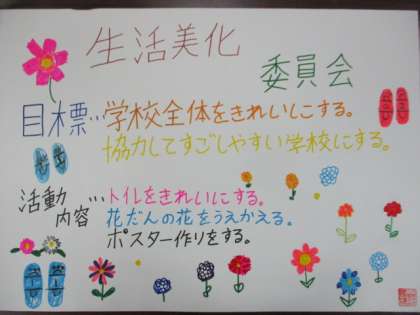 生活美化
委員会
目標…学校全体をきれいにする。
協力してすごしやすい学校にする。
活動内容…トイレをきれいにする。
花だんの花をうえかえる。
ポスター作りをする。